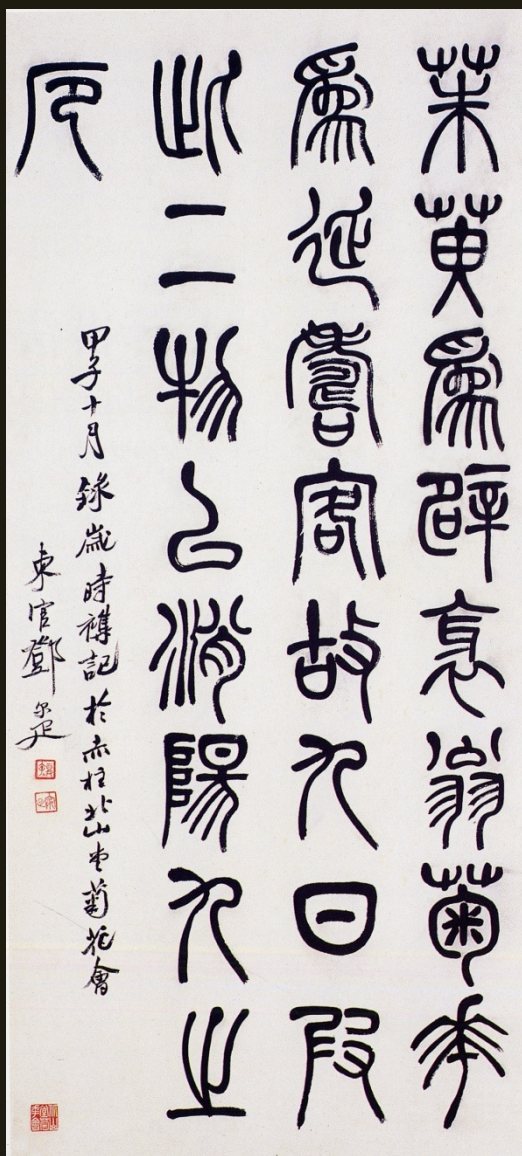 茱萸爲辟衺翁菊華
爲延壽客故九日叚
此二物㠯消陽九之
厄
甲子十月錄歲時襍記於赤柱北山堂菊花會
東官鄧尔疋